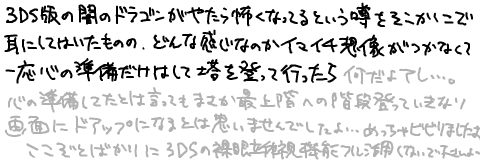 3DS版の闇のドラゴンがやたら怖くなってるという噂をそこかしこで
耳にしてはいたものの、どんな感じなのかイマイチ想像がつかなくて
一応心の準備だけはして塔を登って行ったら 何だよアレ…。
心の準備してたとは言ってもまさか最上階への階段登っていきなり
画面にドアップになるとは思いませんでしたよ…めっちゃビビりましたよ
ここぞとばかりに3DSの裸眼立体視機能フル活用しないで下さいよ